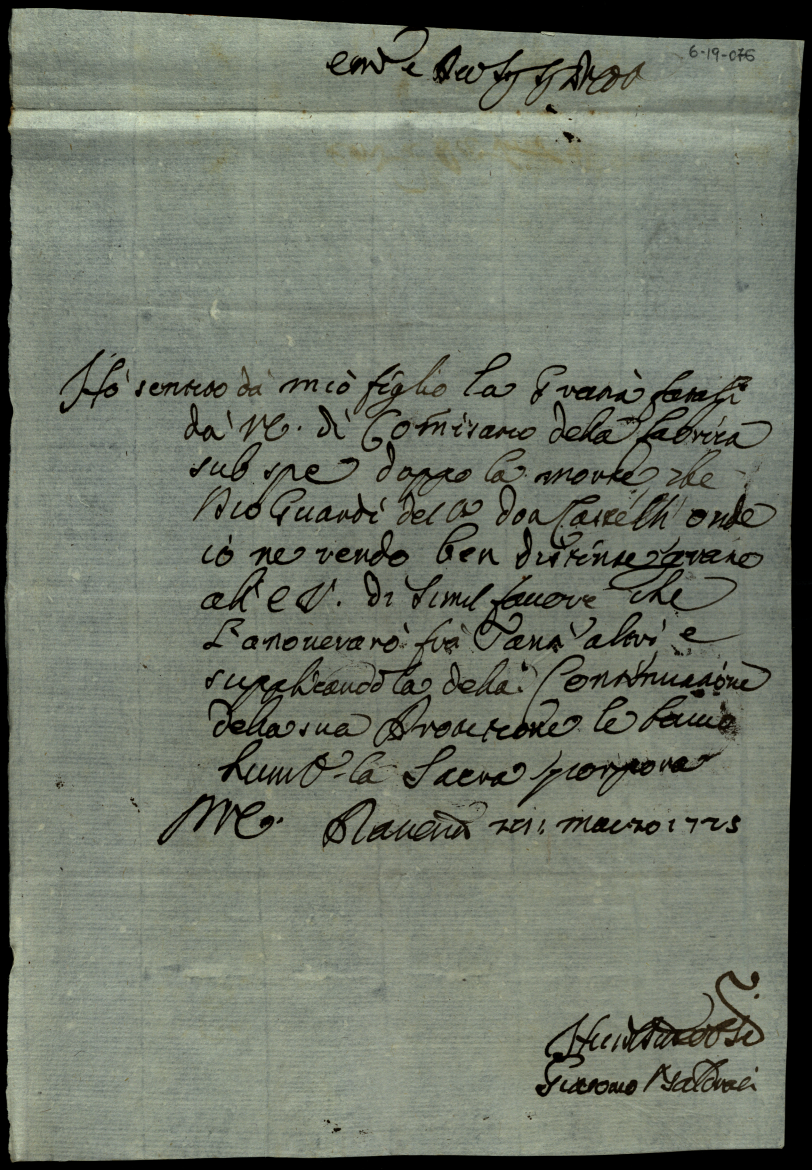 6-19-076
Em.e Rev Sig Sig
Hò sentito da mio figlio la Grazia fatagli
da V.E. di Comisario della fabrica
sub spe doppo la morte che
Dio Guardi del don Castelli onde
io ne rendo ben distinte grazie
all' E.V. di simil favore che
L'anoverarò frà tanti altri e
suplicandola della Continuazione
della sua Protecione le bacio
humil. la Sacra porpora
D.V.E. Ravena marzo 1725
Giacomo